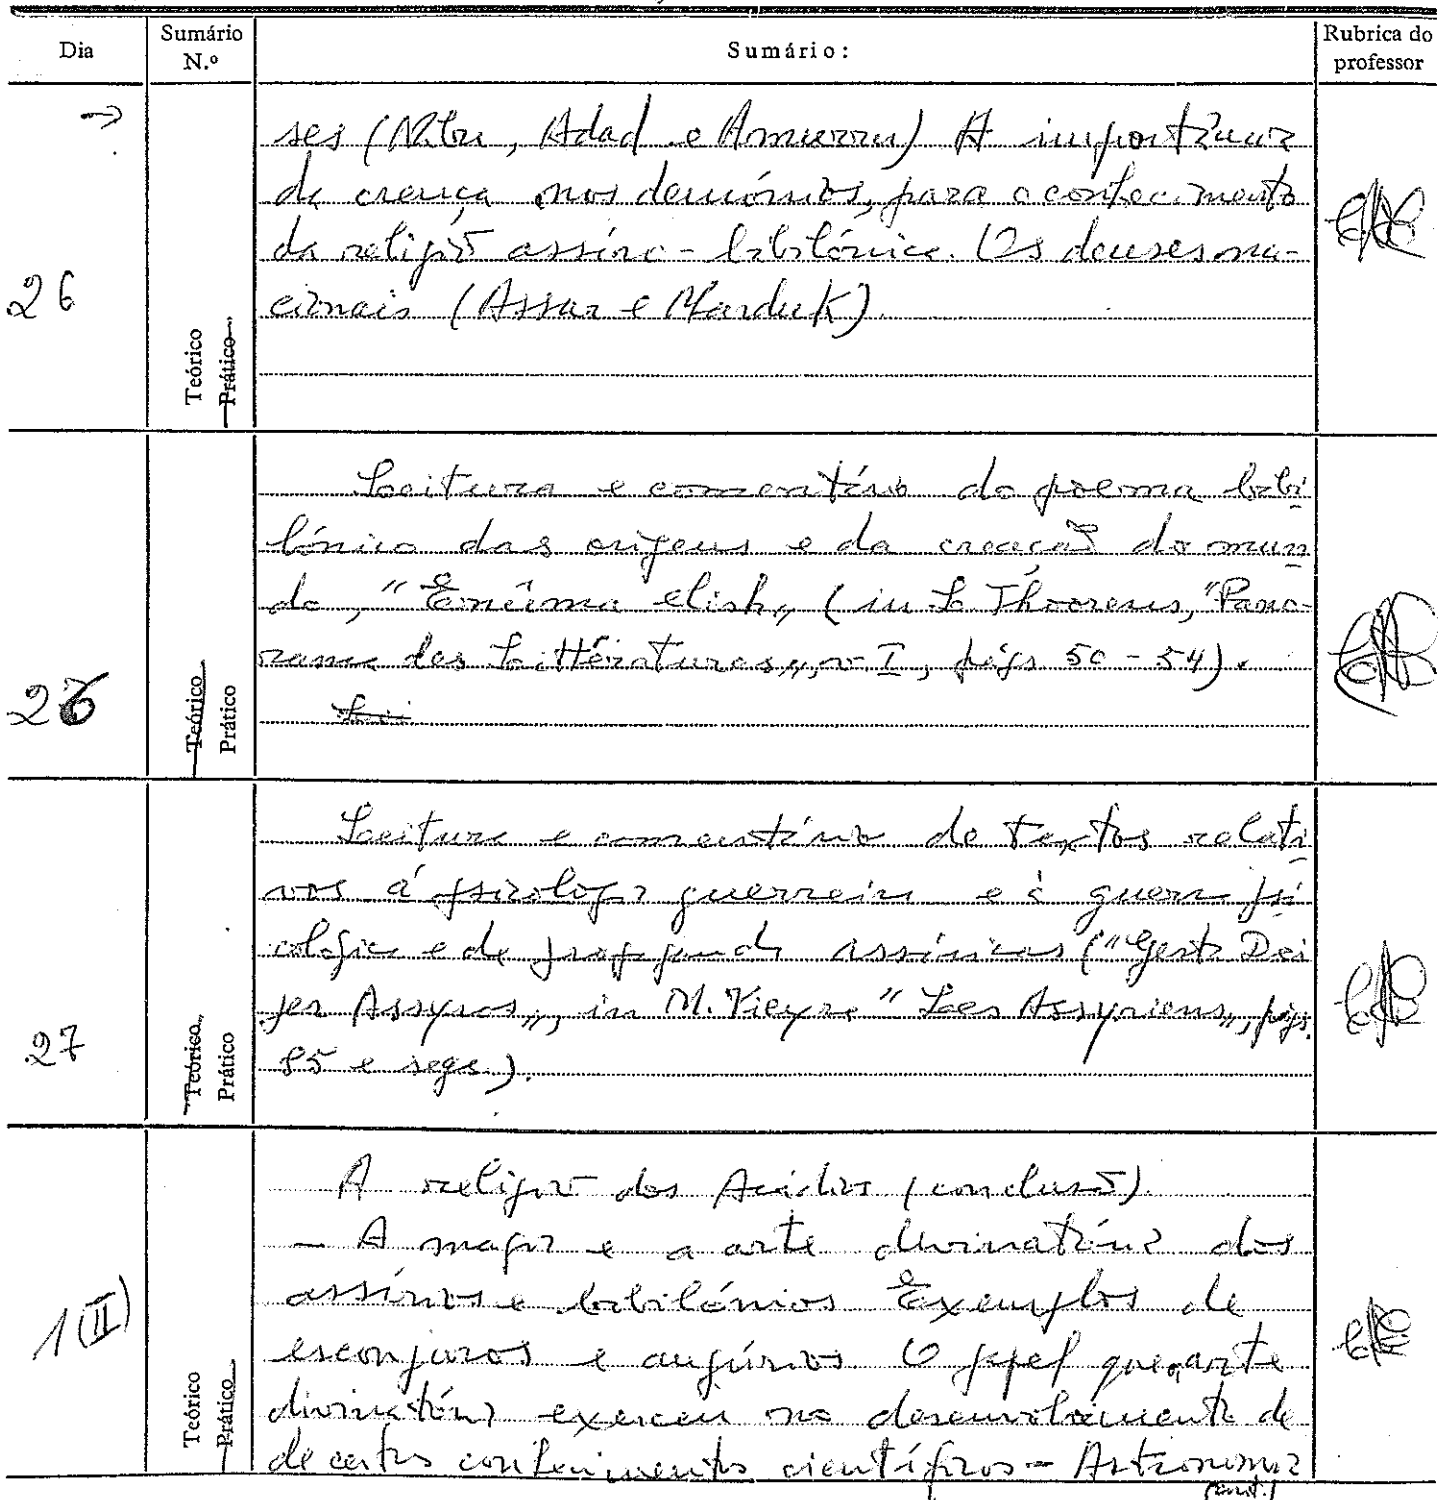 Dia
Sumário N.º
Sumário:
Rubrica do professor
→
26
Teórico
Prático
ses (Adad e Amurru) A importância
da crença nos demónios, para o conhecimento
da religião assiro-babilónica. Os deuses na-
cionais (Assur e Marduk).
26
Teórico
Prático
Leitura e comentário do poema babi
lónico das origens e da creação do mun
do, "Enûma elish„ (in L. Thoorens, "Pano-
rama des Littératures„, v. I, págs 50-54).
Lei
27
Teórico
Prático
Leitura e comentário de textos relati
vos á psicologia guerreira e à guerra psi
cológica e de propaganda assírias ("Gesta Dei
per Assyros„, in M. Vieyra "Les Assyriens„, págs.
85 e segs.).
1 (II)
Teórico
Prático
A religião dos Acádios (conclusão).
- A magia e a arte divinatória dos
assírios e babilónios Exemplos de
esconjuros e augúrios. O papel que a arte
divinatória exerceu no desenvolvimento de
de certos conhecimentos científicos - Astronomia
(cont.)